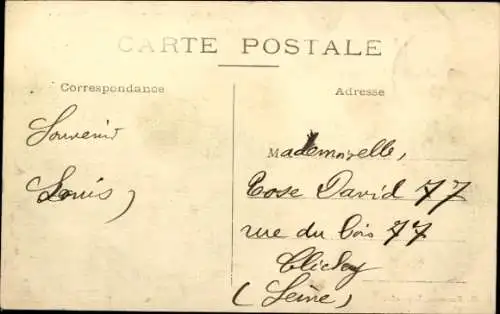 CARTE POSTALE
Correspondance
Adresse
Souvenir
Louis
Mademoiselle,
Rose David 77
rue du Bois 77
Clichy
(Seine)